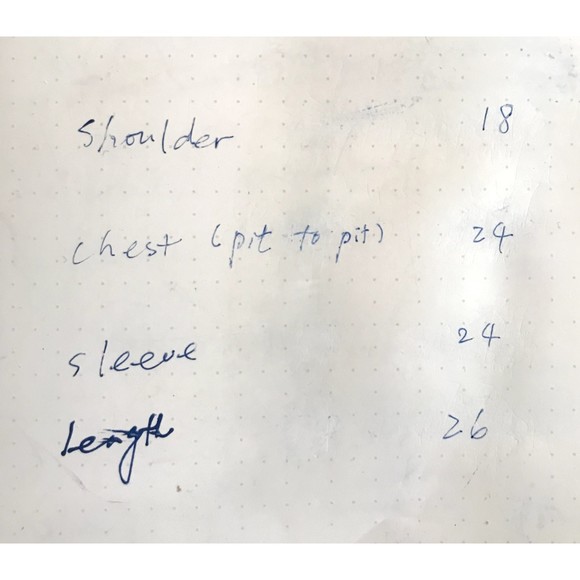 shoulder 18
chest (pit to pit) 24
sleeve 24
length 26